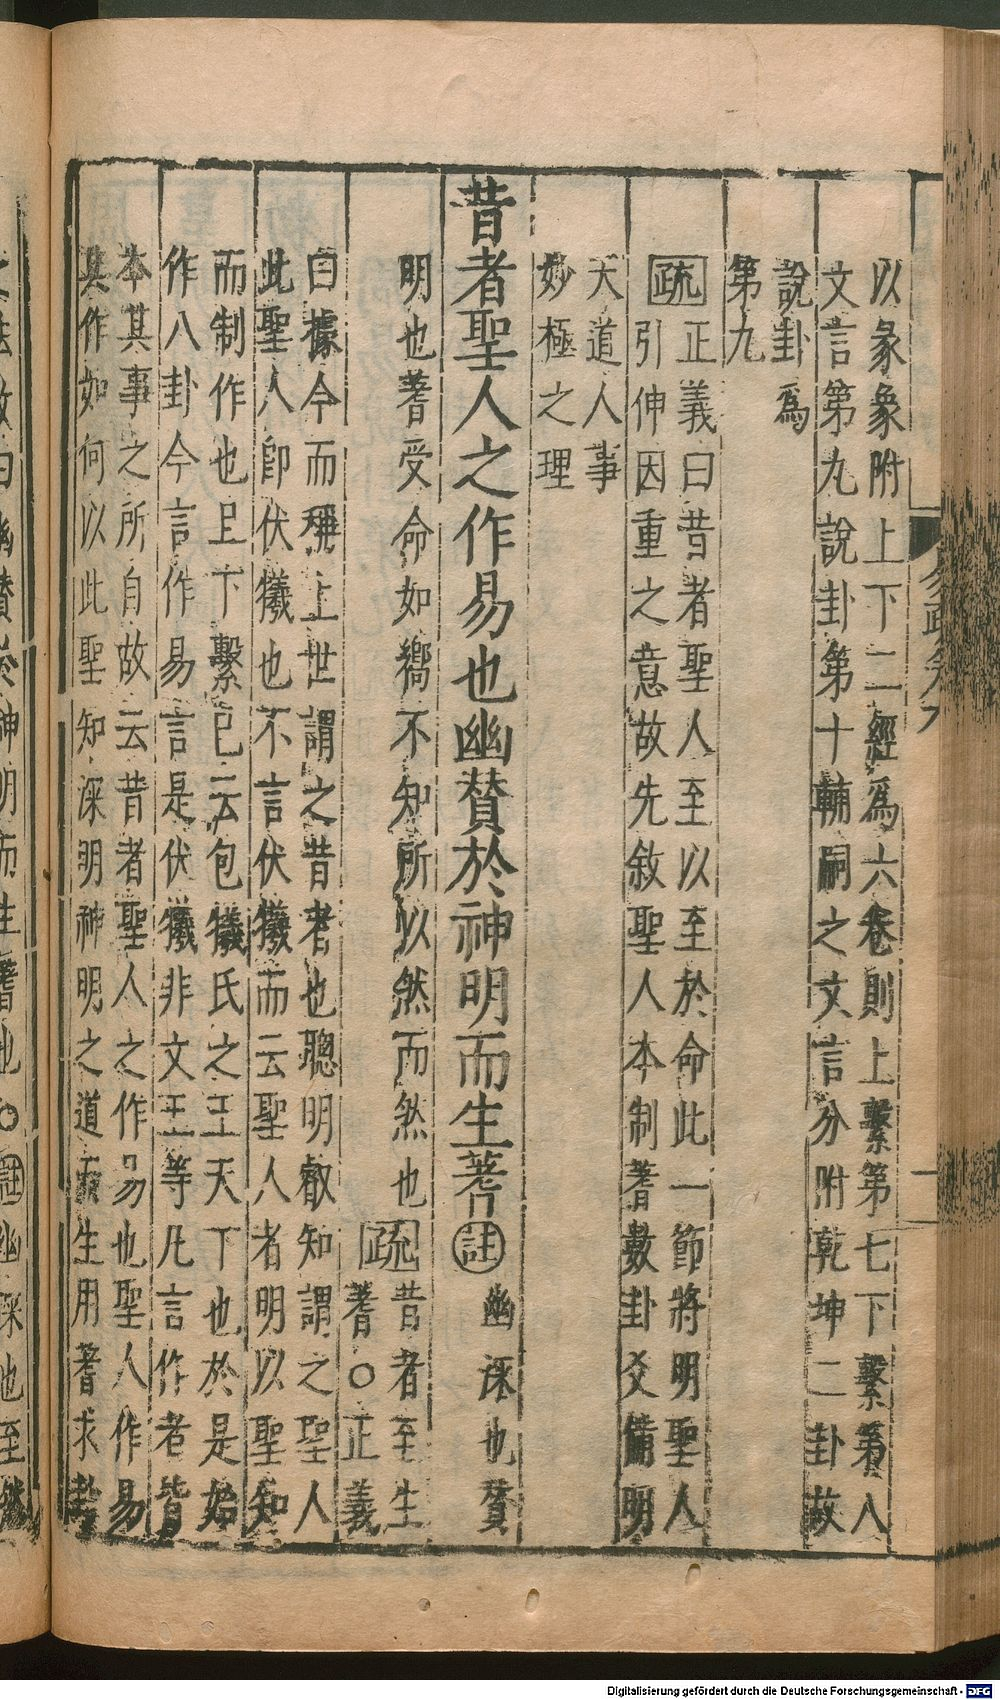 以彖象附上下二經爲六卷則上繫第七下繫第八
文言第九說卦第十輔嗣之文言分附乾坤二卦故
說卦爲
第九
疏正義曰昔者聖人至以至於命此一節將明聖人
引伸因重之意故先敘聖人本制蓍數卦爻備明
天道人事
妙極之理
昔者聖人之作易也幽賛於神明而生蓍註幽深也賛
明也蓍受命如嚮不知所以然而然也疏昔者至生
蓍○正義
曰據今而稱上世謂之昔者也聰明叡知謂之聖人
此聖人卽伏犧也不言伏犧而云聖人者明以聖知
而制作也且下繫已云包犧氏之王天下也於是始
作八卦今言作易言是伏犧非文王等凡言作者皆
本其事之所自故云昔者聖人之作易也聖人作易
其作如何以此聖知深明神明之道而生用蓍求卦
神明而生蓍也○註幽深也至然
Digitalisierung gefördert durch die Deutsche Forschungsgemeinschaft - DFG